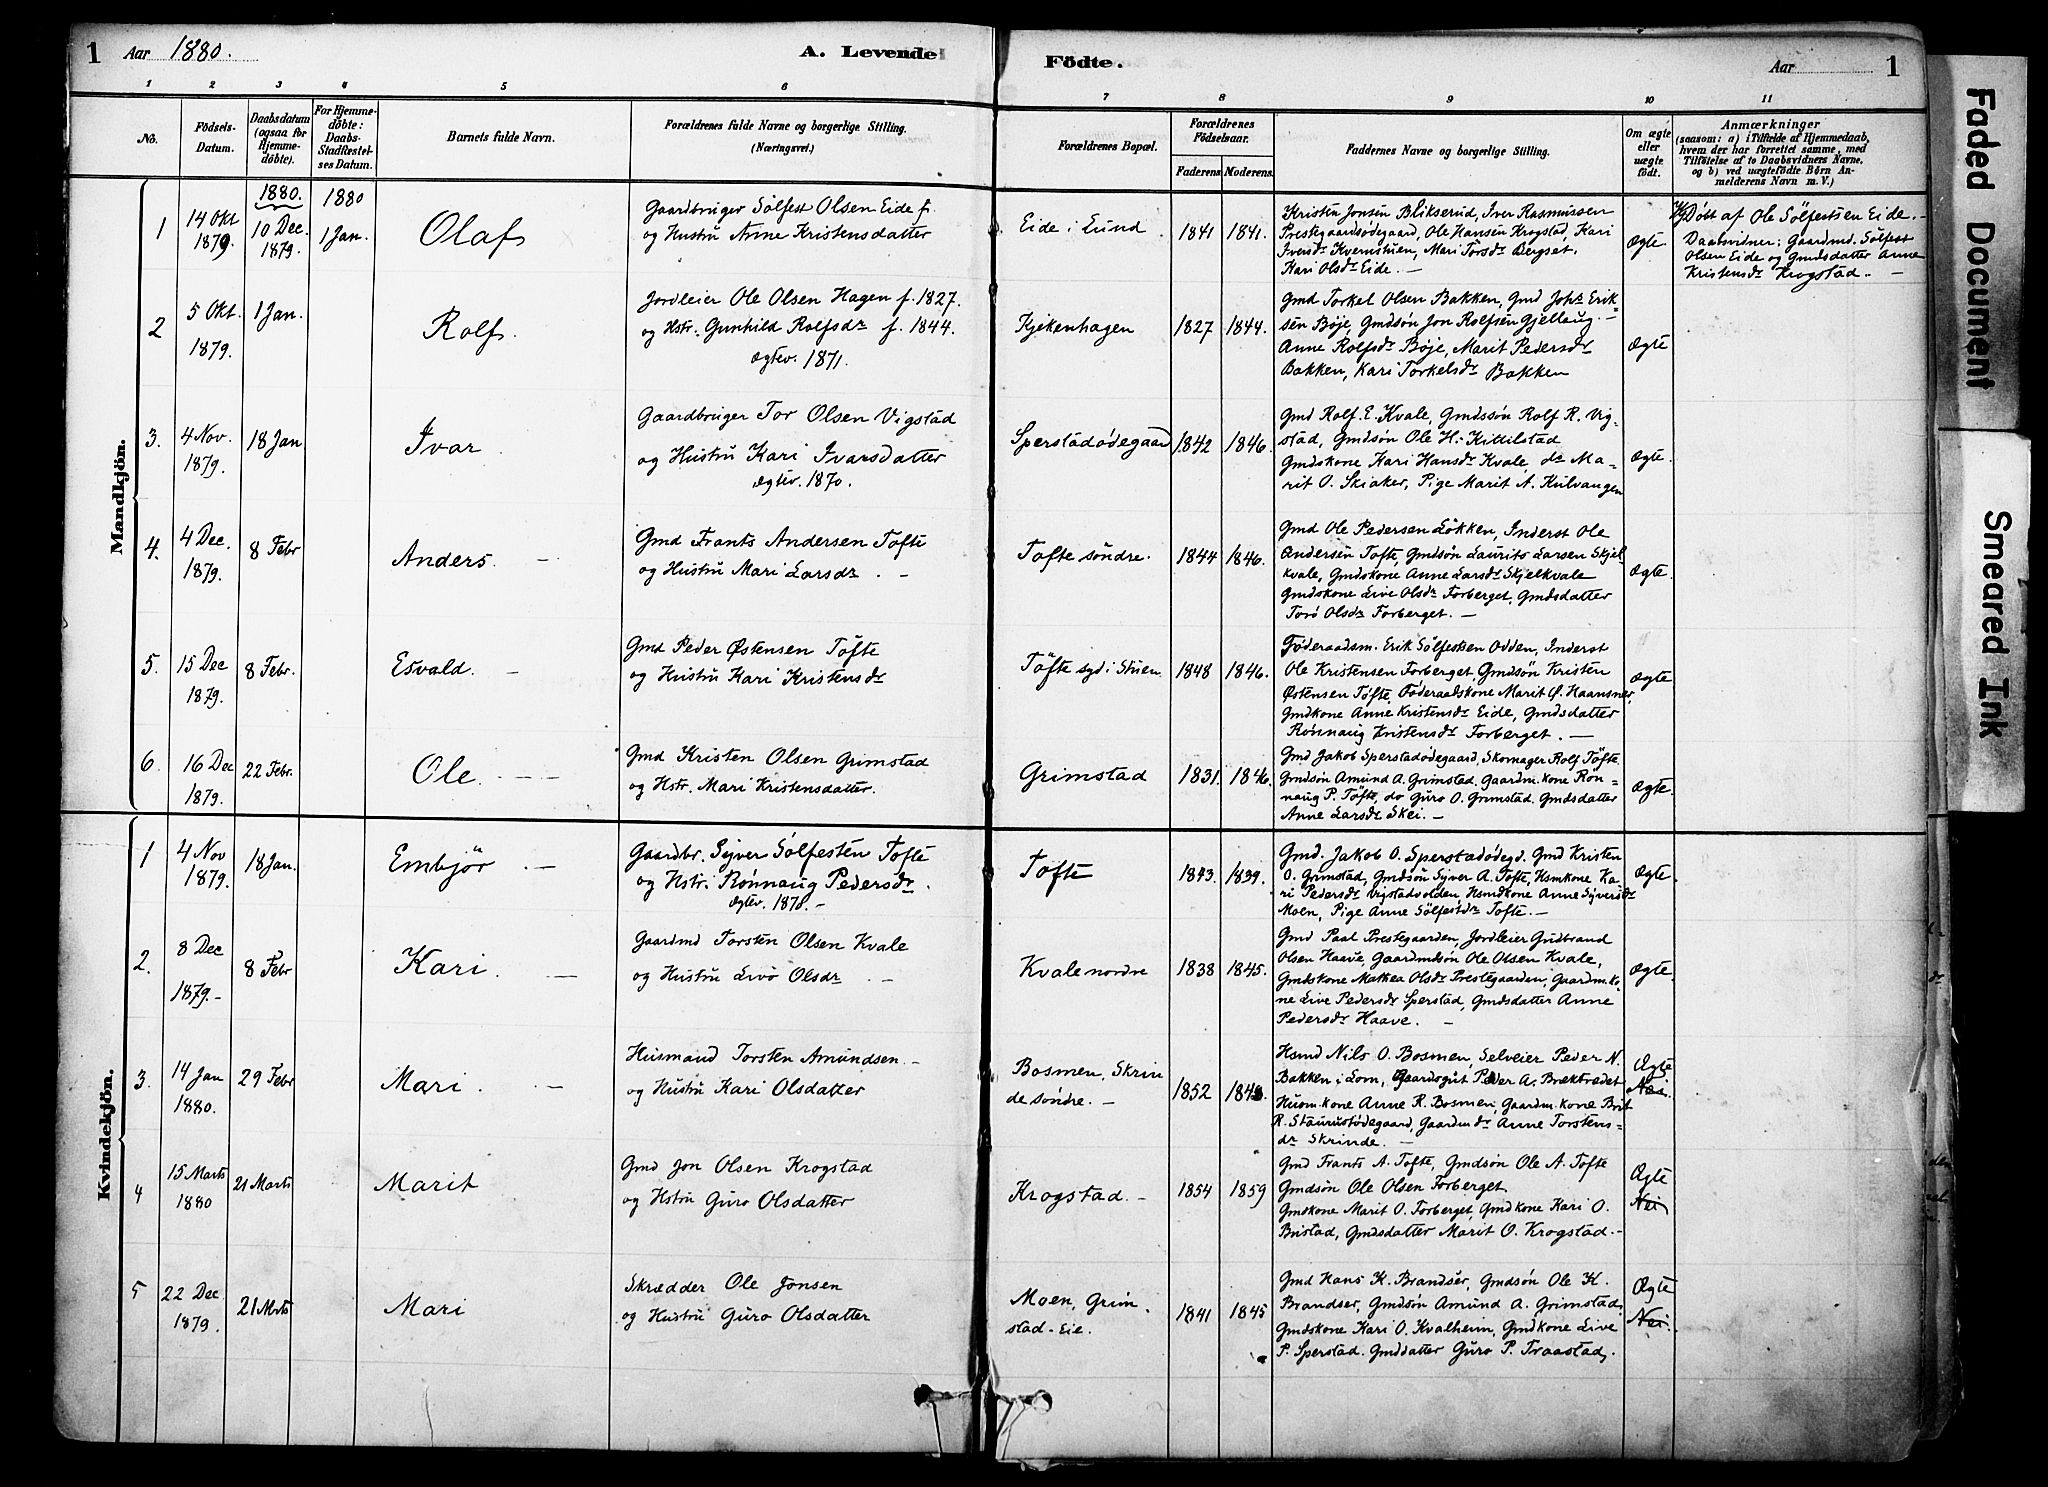 1 Aar 1880. A. Levende Födte. Aar 1
1 2 3 4 5 6 7 8 9 10 11
No.
Födsels-Datum.
Daabsdatum (ogsaa for Hjemmedöbte).
For Hjemmedöbte: Daabs-Stadfæstelses Datum.
Barnets fulde Navn.
Forældrenes fulde Navne og borgerlige Stilling.
(Næringsvei.)
Forældrenes Bopæl.
Forældrenes Födselsaar.
Faderens Moderens.
Faddernes Navne og borgerlige Stilling.
Om ægte eller uægte födt.
Anmærkninger
(saasom: a) i Tilfælde af Hjemmedaab,
hvem der har forrettet samme, med
Tilföielse af to Daabsvidners Navne,
og b) ved uægtefödte Börn An-
melderens Navn m. V.)
Mandkjön.
1880. 1880
1 14 Okt 1879. 10 Dec. 1879. 1 Jan. Olaf
Gaardbruger Sölfest Olsen Eide f.
og Hustru Anne Kristensdatter
Eide i Lund 1841 1841.
Kristen Jonsen Blikserud, Iver Rasmussen
Prestegaardsödegaard, Ole Hansen Krogstad, Kari
Iversdr Kvernstuen, Mari Torsdr Bergset.
Kari Olsdr Eide. —
Ægte
Döbt af Ole Sölfestsen Eide. —
Daabsvidner: Gaardmd. Sölfest
Olsen Eide og Gmdsdatter Anne
Kristensdr Krogstad. —
2 5 Okt. 1879. 1 Jan. Rolf.
Jordleier Ole Olsen Hagen f. 1827.
og Hstr. Gunhild Rolfsdr f. 1844.
Ægtev. 1871.
Kjøkenhagen 1827 1844.
Gmd Torkel Olsen Bakken, Gmd Johs Erik
sen Bøje, Gmdsön Jon Rolfsen Gjellaug. —
Anne Rolfsdr Bøje, Marit Pedersdr
Bakken, Kari Torkelsdr Bakken
Ægte
3. 4 Nov. 1879. 18 Jan Ivar
Gaardbruger Tor Olsen Vigstad
og Hustru Kari Ivarsdatter
Ægtev. 1870.
Sperstadødegaard 1842 1846.
Gmd Rolf E. Kvale, Gmdssön Rolf R. Vig-
stad, Gmdsön Ole H. Kittilstad
Gmdskone Kari Hansdr Kvale, do Ma-
rit O. Skiaker, Pige Marit A. Kulvangen
Ægte.
4. 4 Dec. 1879. 8 Febr Anders. —
Gmd Frants Andersen Tofte
og Hustru Mari Larsdr. —
Tofte söndre. 1844 1846.
Gmd Ole Pedersen Lökken, Inderst Ole
Andersen Tofte, Gmdsön Laurits Larsen Skjel
kvale, Gmdskone Anne Larsdr Skjelkvale
Gmdskone Live Olsdr Forberget, Gmdsdatter
Toro Olsdr Forberget. —
Ægte.
5. 15 Dec 1879. 8 Febr. Esvald. —
Gmd Peder Østensen Töfte
og Hustru Kari Kristensdr
Töfte syd i Stuen 1848 1846.
Föderaadsm. Erik Sölfestsen Odden, Inderst
Ole Kristensen Forberget, Gmdsön Kristen
Østensen Töfte, Föderaadskone Marit Ø. Haansner,
Gmdkone Anne Kristensdr Eide, Gmdsdatter
Rønnaug Kristensdr Forberget. —
Ægte
6. 16 Dec 1879. 22 Febr. Ole. —
Gmd Kristen Olsen Grimstad
og Hstr. Mari Kristensdatter.
Grimstad 1831. 1846.
Gmd Jakob Sperstadødegaard, Skomager Rolf Töfte.
Gmdsön Amund A. Grimstad, Gaardm.kone Røn-
naug P. Töfte, do Guro O. Grimstad. Gmdsdatter
Anne Larsdr Skei. —
Ægte.
Kvindekjön.
1 4 Nov 1879. 18 Jan. Embjör —
Gaardbr. Syver Sölfesten Tofte
og Hstr. Rönnaug Pedersdr.
Ægtev. 1870. —
Tofte 1843. 1839.
Gmd. Jakob O. Sperstadödegd. Gmd Kristen
O. Grimstad, Gmdsön Syver A. Tofte, Hsmkone Ka-
ri Pedersdr Vigstadvolden, Hsmdkone Anne Syversdr
Moen, Pige Anne Sölfestdr Tofte. —
Ægte.
2. 8 Dec 1879. — 8 Febr Kari. —
Gaardmd Torsten Olsen Kvale
og Hustru Livo Olsdr —
Kvale nordre 1838 1845.
Gmd Paal Prestegaarden, Jordleier Gudbrand
Olsen Haave, Gaardmdsön Ole Olsen Kvale,
Gmdskone Mathea Olsdr Prestegaarden, Gaardm.ko-
ne Live Pedersdr Sperstad, Gmdsdatter Anne
Pedersdr Haave. —
Ægte.
3. 14 Jan 1880. 29 Febr Mari. —
Husmand Torsten Amundsen —
og Hustru Kari Olsdatter
Bosmen, Skrin
de söndre. — 1852
Hsmd Nils O. Bosmen, Selveier Peder N.
Bakken i Lom, Gaardsgut Peder A. Brektrædet
Husm.kone Anne R. Bosmen, Gaardm.kone Brit
R. Staurustødegaard, Gaardmdr Anne Torstens-
dr Skrinde. —
Ægte
Nei.
4 15 Marts 1880 21 Marts Marit
Gmd Jon Olsen Krogstad
og Hstru Guro Olsdatter
Krogstad. — 1854 1859
Gmd Frants A. Tofte, Gmdsön Ole A. Tofte
Gmdsön Ole Olsen Forberget
Gmdkone Marit O. Forberget, Gmdkone Kari O.
Bustad, Gmdsdatter Marit O. Krogstad. —
Ægte
Nei
5 22 Dec 1879. 21 Mrts Mari
Skrædder Ole Jonsen
og Hustru Guro Olsdatter
Moen, Grim-
stad-Eie. 1841 1845
Gmd Hans K. Brandser, Gmdsön Ole K.
Brandser, Gmdsön Amund A. Grimstad,
Gmdskone Kari O. Kvalheim, Gmdkone Live
P. Sperstad. Gmddatter Guro P. Traastad,
Ægte
Nei.
Faded Document
Smeared Ink